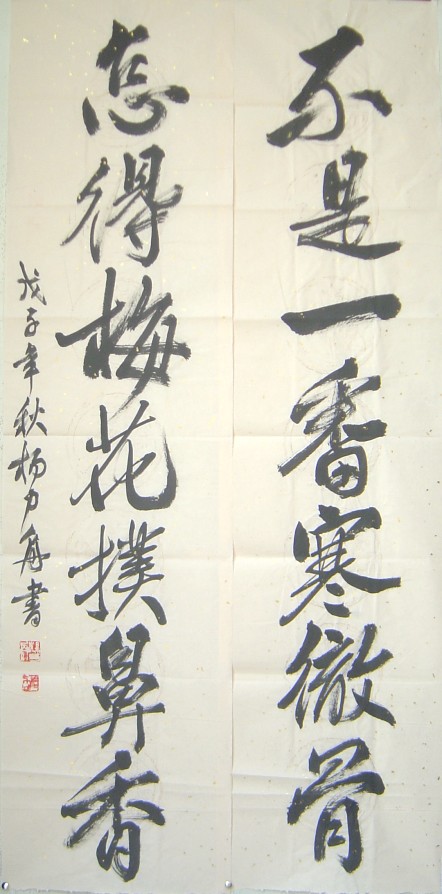 不是一番寒徹骨
怎得梅花撲鼻香
戊子年秋杨力舟書